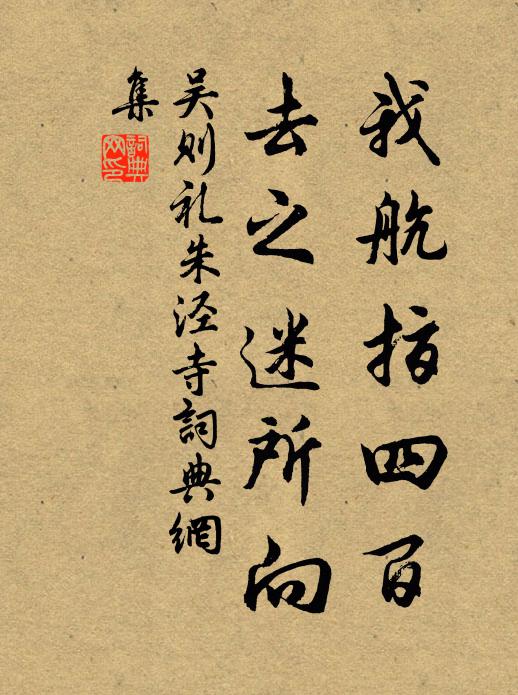 我航指四百
去之迷所向
吴则礼朱泾寺詞典網
集
詞典
网印